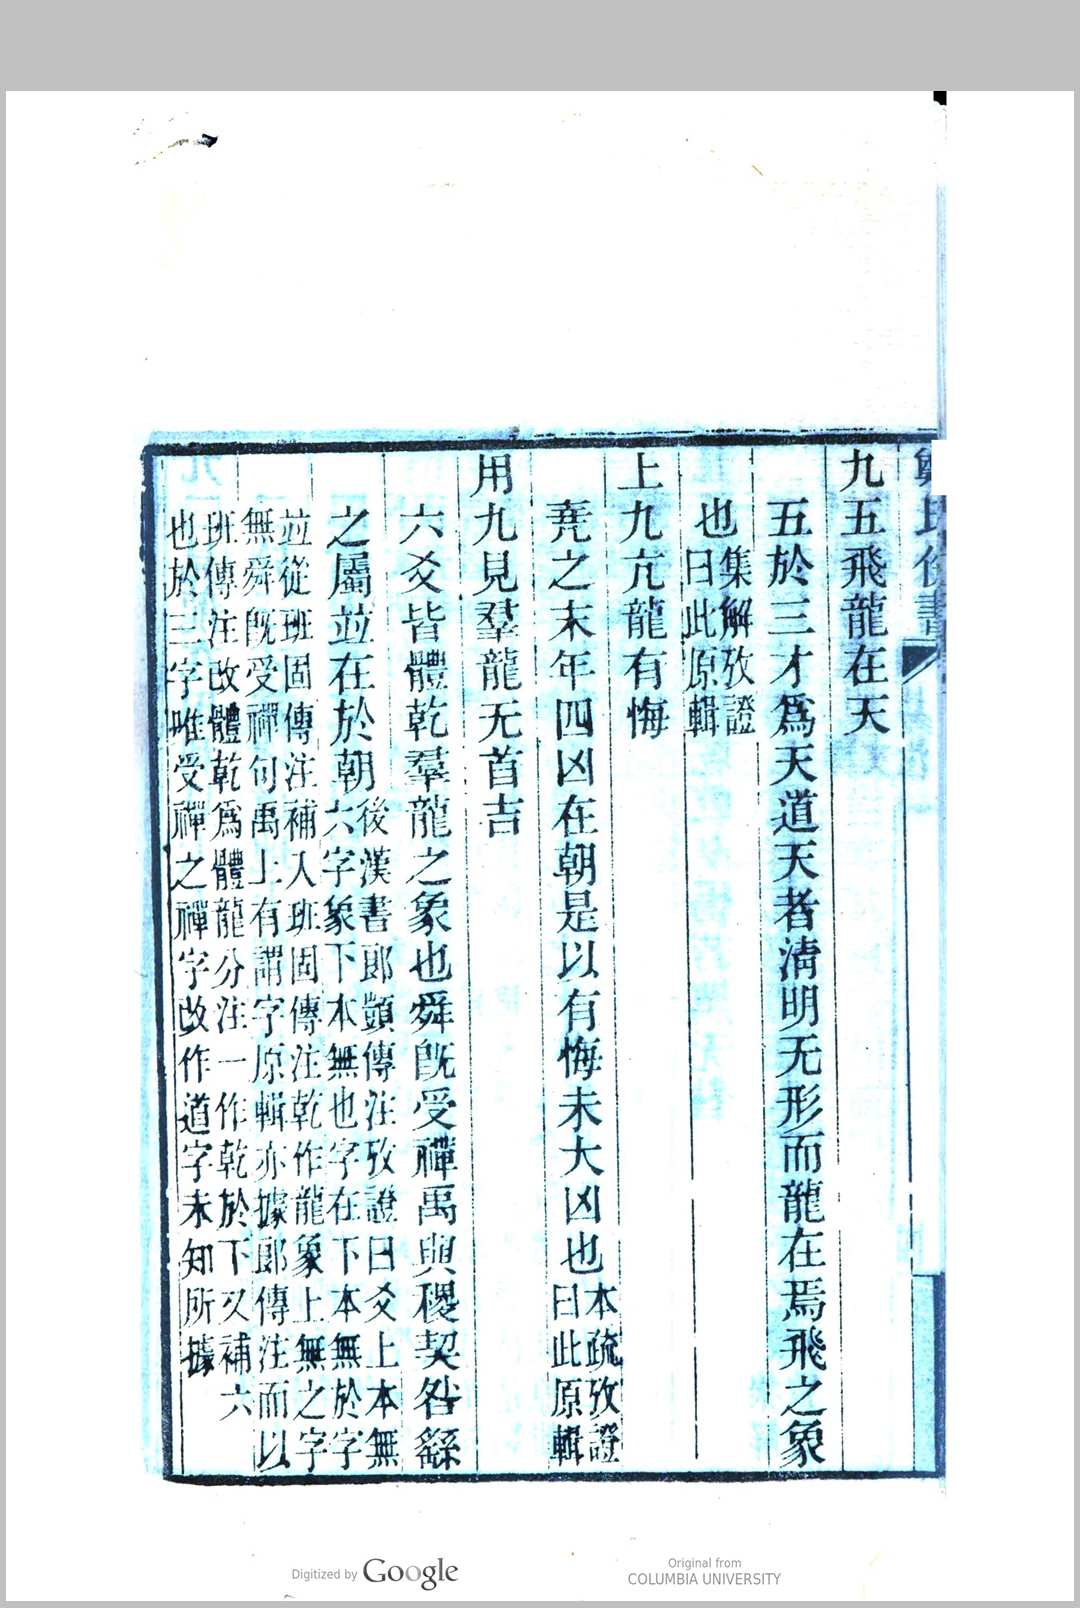 鄭氏佚書
九五飛龍在天
五於三才爲天道天者淸明无形而龍在焉飛之象
也集解攷證
曰此原輯
上九亢龍有悔
堯之末年四凶在朝是以有悔未大凶也本疏攷證
曰此原輯
用九見羣龍无首吉
六爻皆體乾羣龍之象也舜旣受禪禹與稷契咎繇
之屬並在於朝後漢書郎顗傳注攷證曰爻上本無
六字象下本無也字在下本無於字
並從班固傳注補入班固傳注乾作龍象上無之字
無舜旣受禪句禹上有謂字原輯亦據郎傳注而以
班傳注改體乾爲體龍分注一作乾於下又補六
也於三字唯受禪之禪字改作道字未知所據
Digitized by Google
Original from
COLUMBIA UNIVERSITY